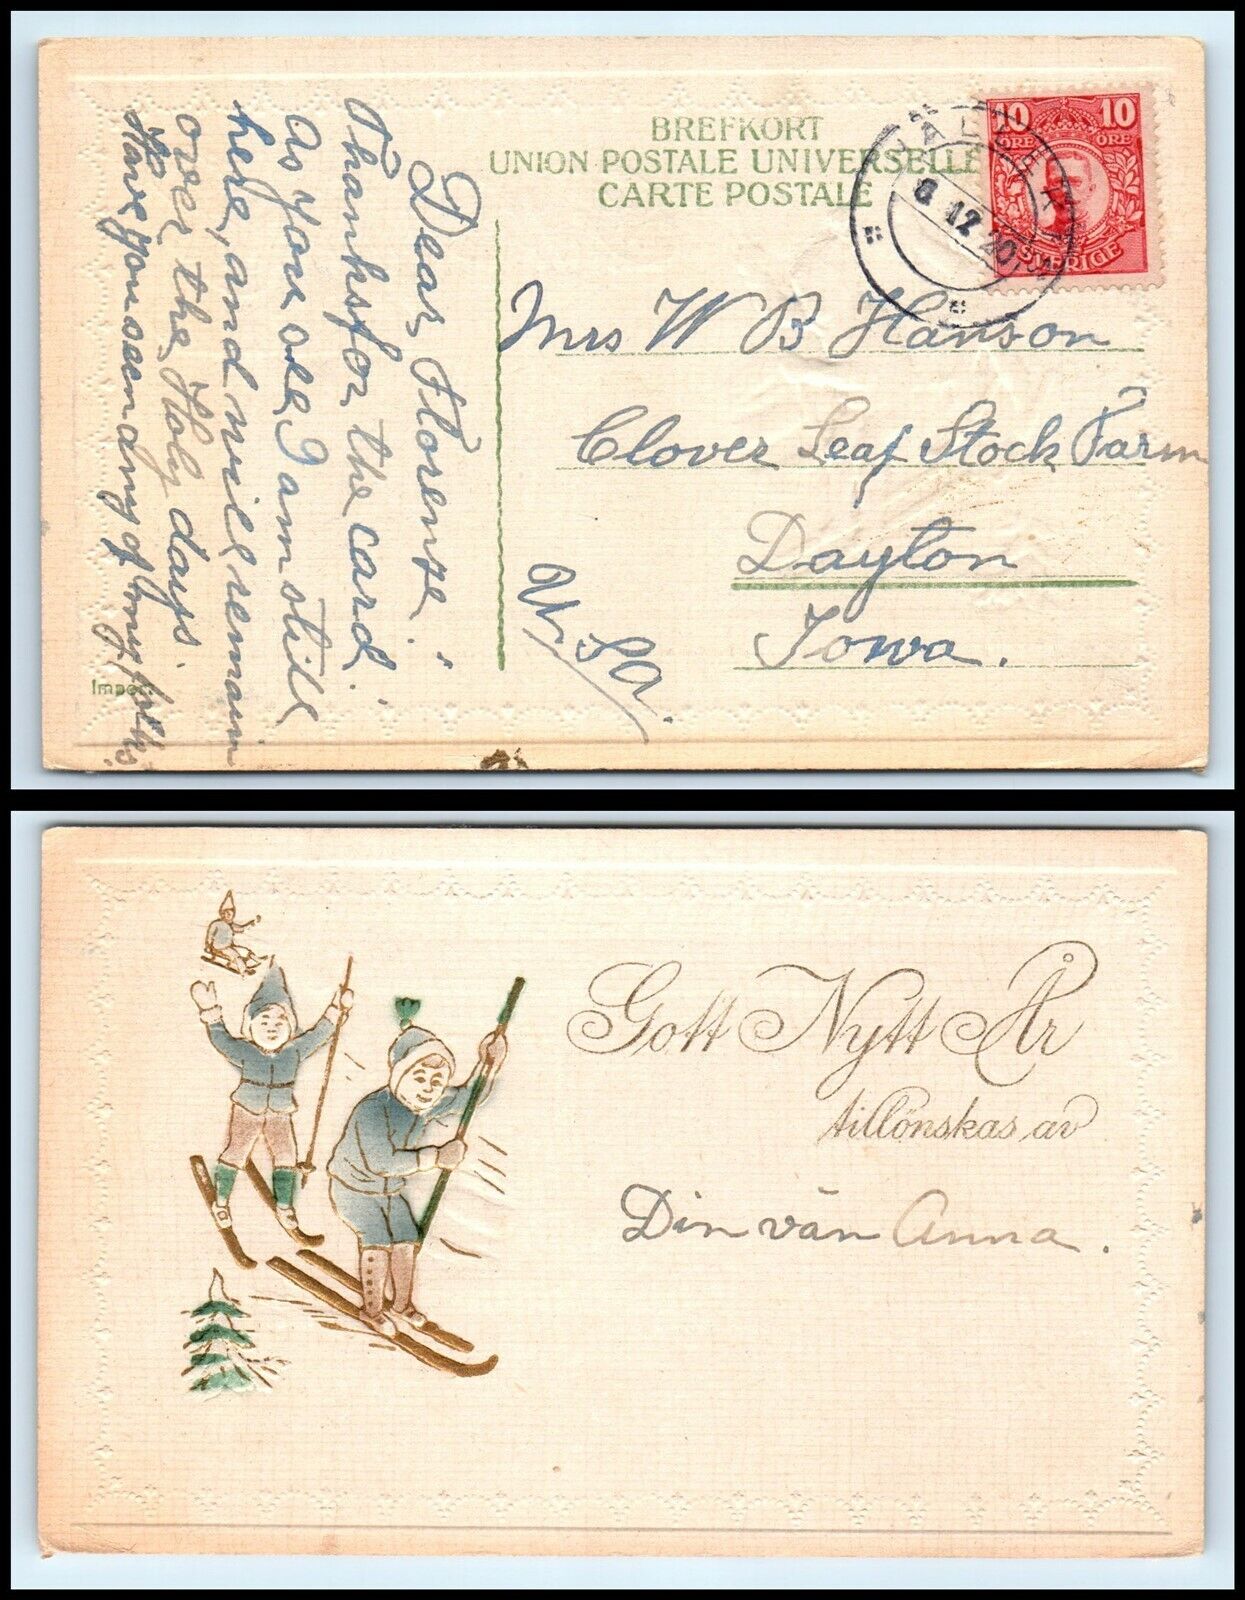 BREFKORT
UNION POSTALE UNIVERSELLE
CARTE POSTALE
10 10
ÖRE ÖRE
SVERIGE
8 12 20
Dear, Florense!
Thanks for the card!
As you see, I am still
here, and will remain
over the Holy days.
Have you seen any of my folks
Mrs W B Hanson
Clover Leaf Stock Farm
Dayton
Iowa.
U.S.A.
Import.
Gott Nytt År
tillönskas av
Din vän Anna.